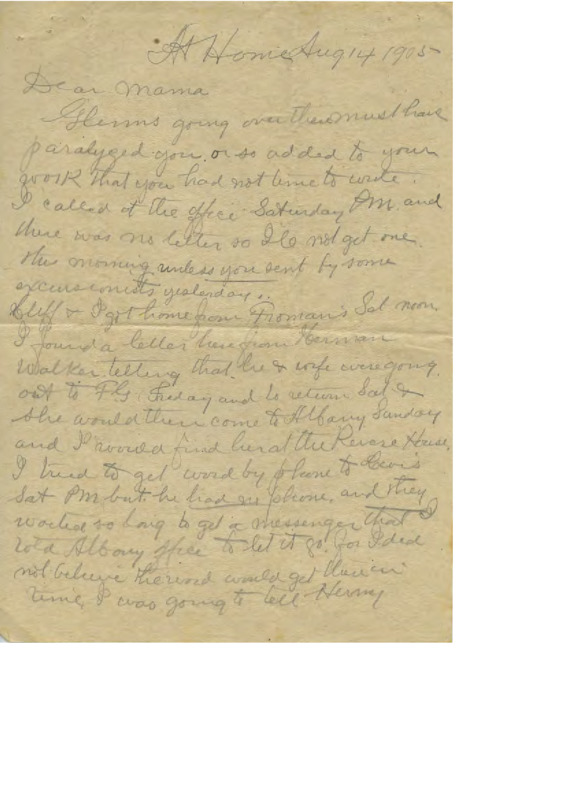 At Home Aug 14 1905
Dear Mama
going over there must have
paralyzed you or so added to your
work that you had not time to write.
I called at the office Saturday PM. and
there was no letter so I'll not get one
this morning unless you sent by some
excursionists yesterday..
Cliff & I got home from Froman's Sat noon
I found a letter here from Herman
Walker telling that he & wife were going
out to Friday and to return Sat &
she would then come to Albany Sunday
and I would find her at the Revere House,
I tried to get word by phone to Lewis
Sat PM but he had no phone, and they
waited so long to get a messenger that I
told Albany office to let it go. for I did
not believe the word would get there in
time, I was going to tell Henry